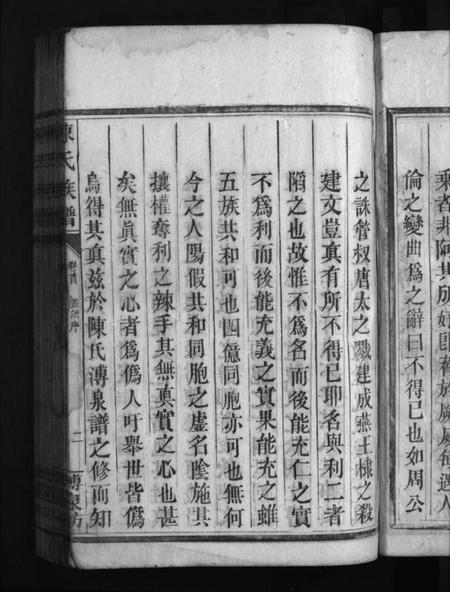 乘者非阿其所好即
倫之變曲爲之辭曰不得已也如周公
之誅管叔唐太之戮建成燕王棣之殺
建文豈真有所不得已耶名與利二者
陷之也故惟不爲名而後能充仁之實
不爲利而後能充義之實果能充之雖
五族共和可也四億同胞亦可也無何
今之人陽假共和同胞之虛名陰施其
攘權奪利之辣手其無真實之心也甚
矣無真實之心者爲偽人吁舉世皆偽
烏得其真兹於陳氏溥泉譜之修而知
陳氏族譜
卷首
譜序
二